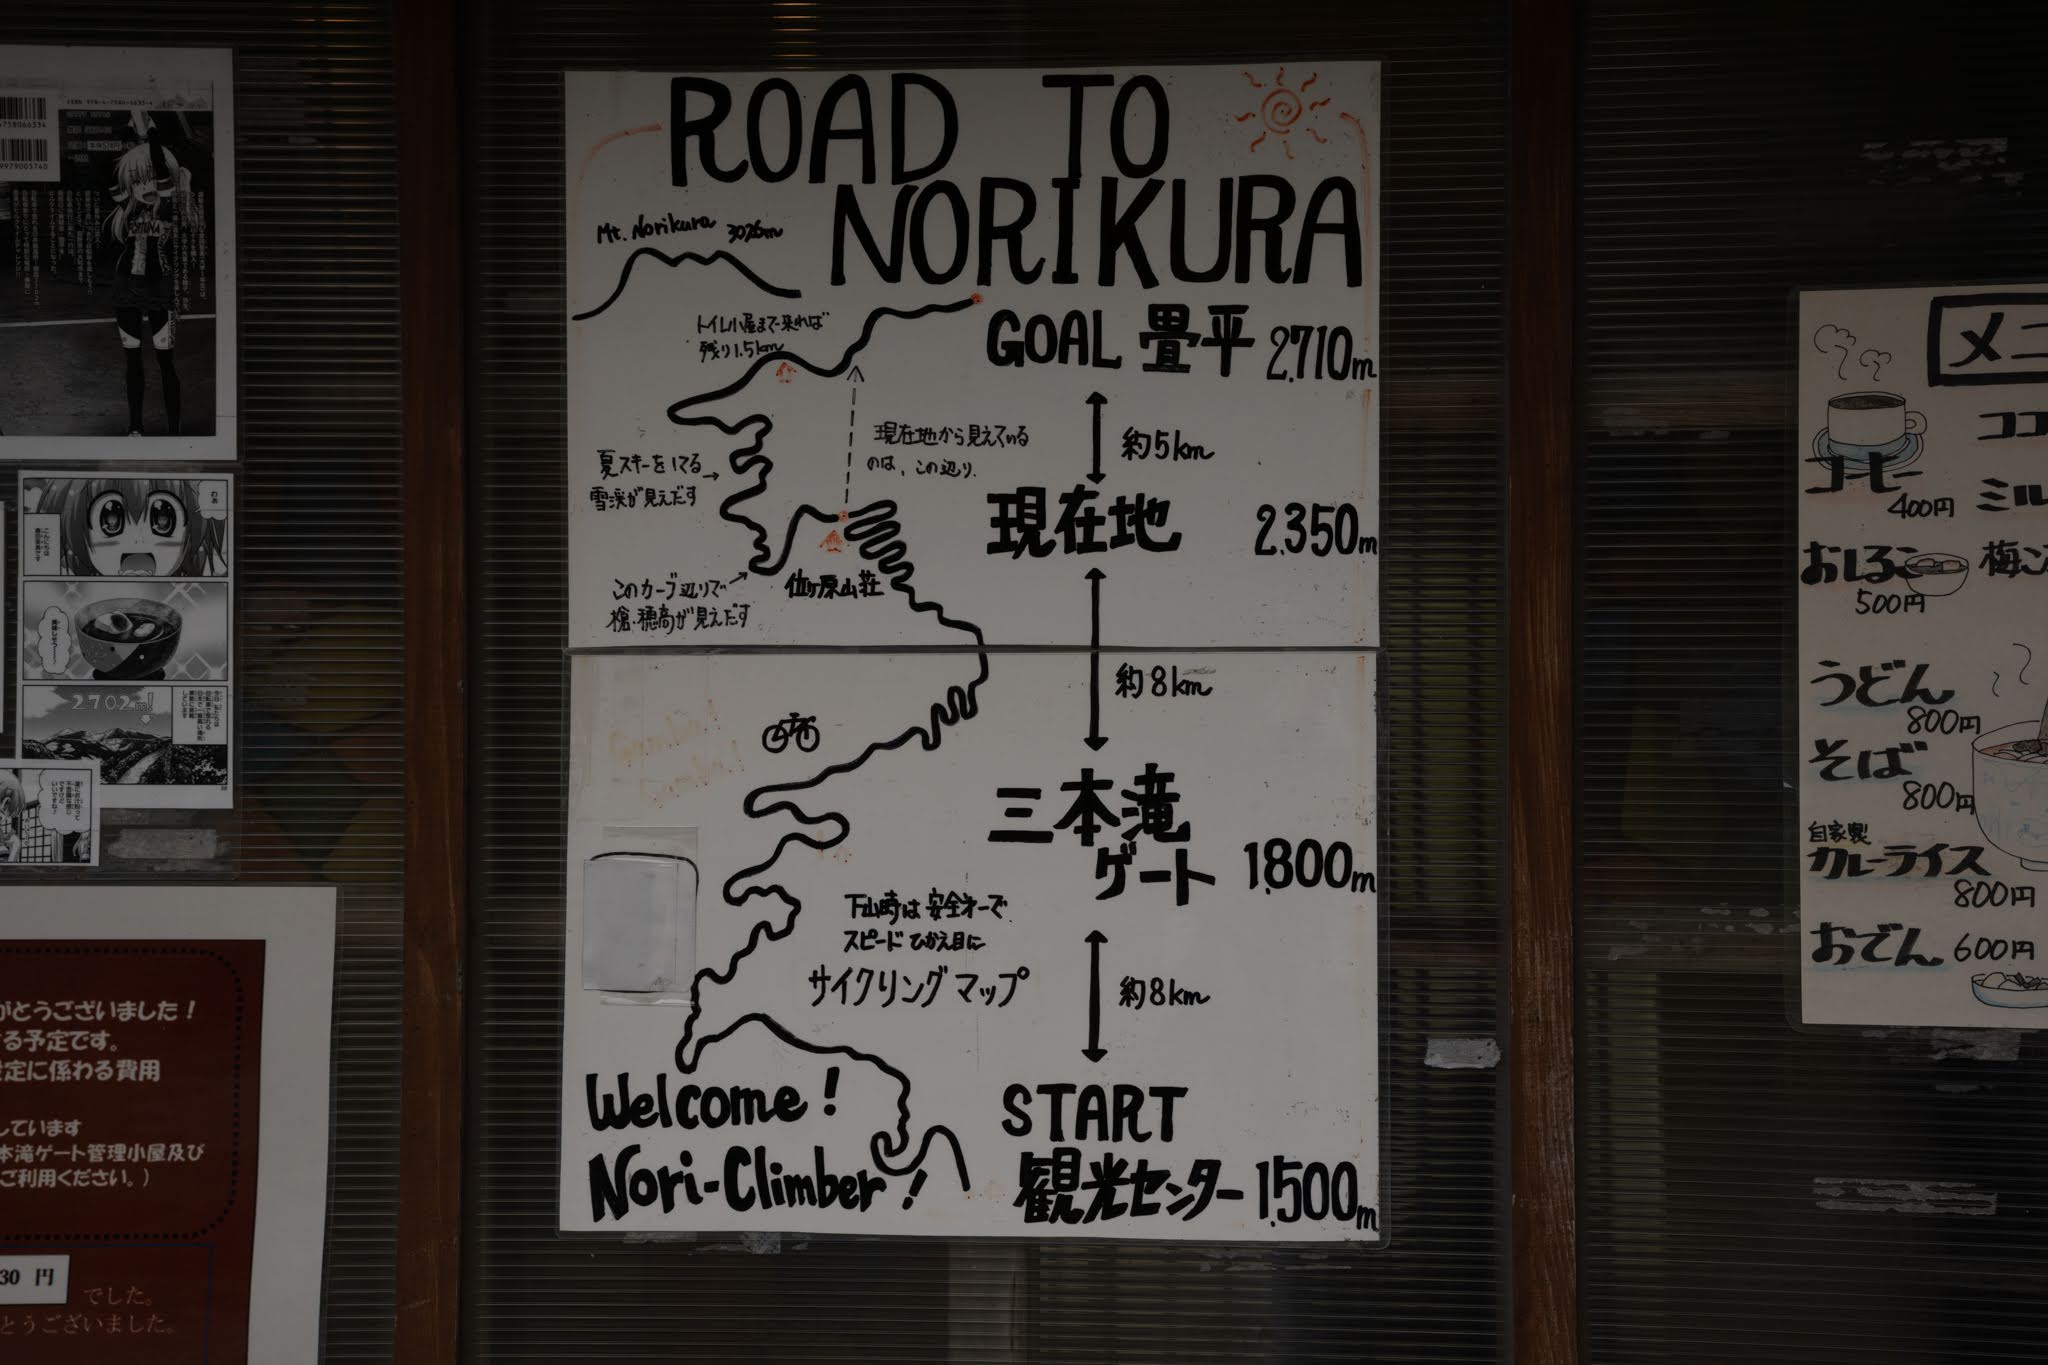 ROAD TO
NORIKURA
Mt. Norikura 3026m
トイレ小屋まで来れば
残り1.5km
GOAL 畳平 2,710m
約5km
現在地から見えている
のは、この辺り.
夏スキーをしてる→
雪渓が見えだす
現在地 2,350m
このカーブ辺りで
槍・穂高が見えだす
位ヶ原山荘
約8km
三本滝
ゲート 1,800m
下山時は安全ネーで
スピードひかえ目に
サイクリングマップ
約8km
Welcome!
Nori-Climber!
START
観光センター 1,500m
ISBN 978-4-7580-6633-4
2702m!
がとうございました!
る予定です。
定に係わる費用
しています
本滝ゲート管理小屋及び
ご利用ください。)
30 円
でした。
とうございました。
メニ
コーヒー
400円
ココ
ミル
おしるこ
500円
梅こ
うどん
800円
そば
800円
自家製
カレーライス
800円
おでん 600円